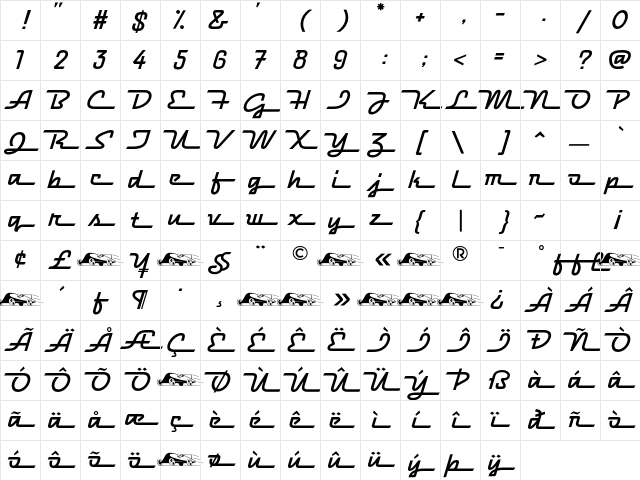 ! " # $ % & ' ( ) * + , - . / 0
1 2 3 4 5 6 7 8 9 : ; < = > ? @
A B C D E F G H I J K L M N O P
Q R S T U V W X Y Z [ \ ] ^ _ `
a b c d e f g h i j k l m n o p
q r s t u v w x y z { | } ~ ¡
¢ £ ¥ § ¨ © « ® ¯ °
´ ¶ · ¸ » ¿ À Á Â
Ã Ä Å Æ Ç È É Ê Ë Ì Í Î Ï Ð Ñ Ò
Ó Ô Õ Ö Ø Ù Ú Û Ü Ý Þ ß à á â
ã ä å æ ç è é ê ë ì í î ï ð ñ ò
ó ô õ ö ø ù ú û ü ý þ ÿ